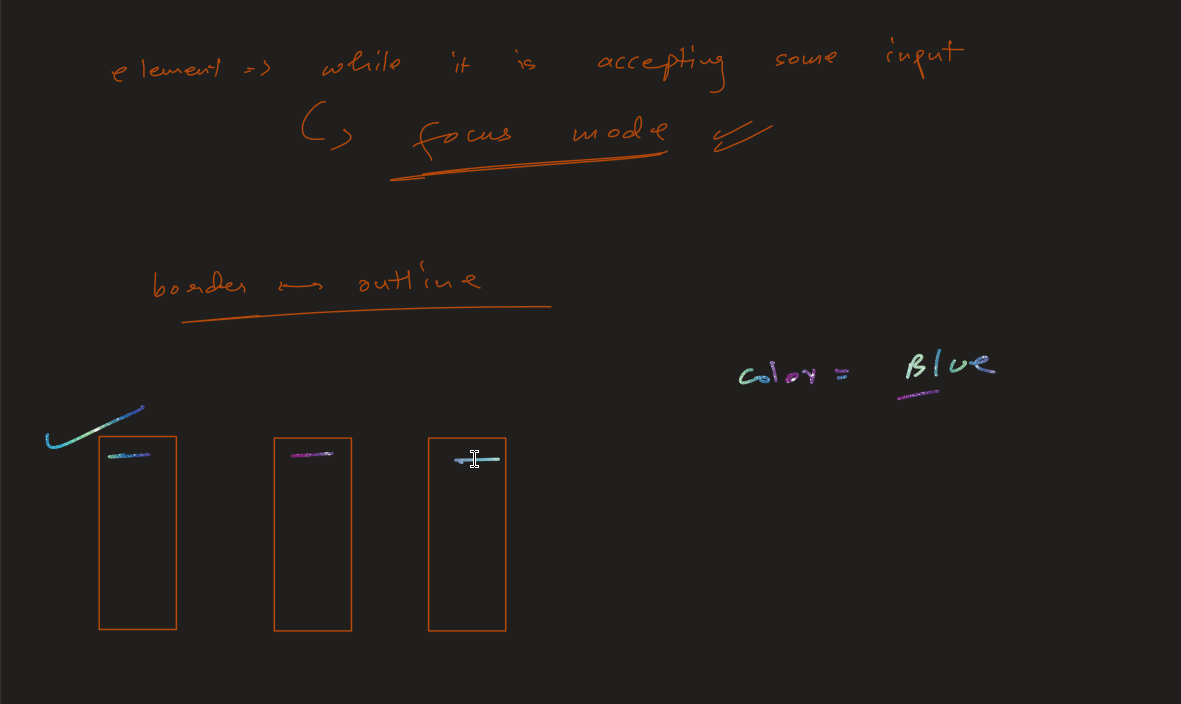 element => while it is accepting some input
focus mode
border ↔ outline
color = Blue